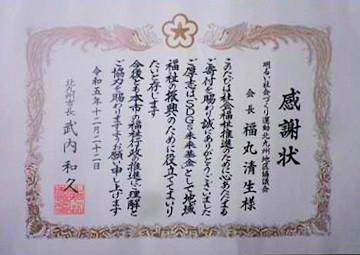 感謝状
明るい社会づくり運動北九州地区協議会
会長 福丸清生様
このたびは社会福祉推進のために心あたたまる
ご寄付を賜り誠にありがとうございました
ご厚志はSDGs未来基金として地域
福祉の振興のために役立ててまいり
たいと存じます
今後とも本市の福祉行政の推進にご理解と
ご協力を賜わりますようお願い申し上げます
令和五年十二月二十二日
北九州市長 武内和久